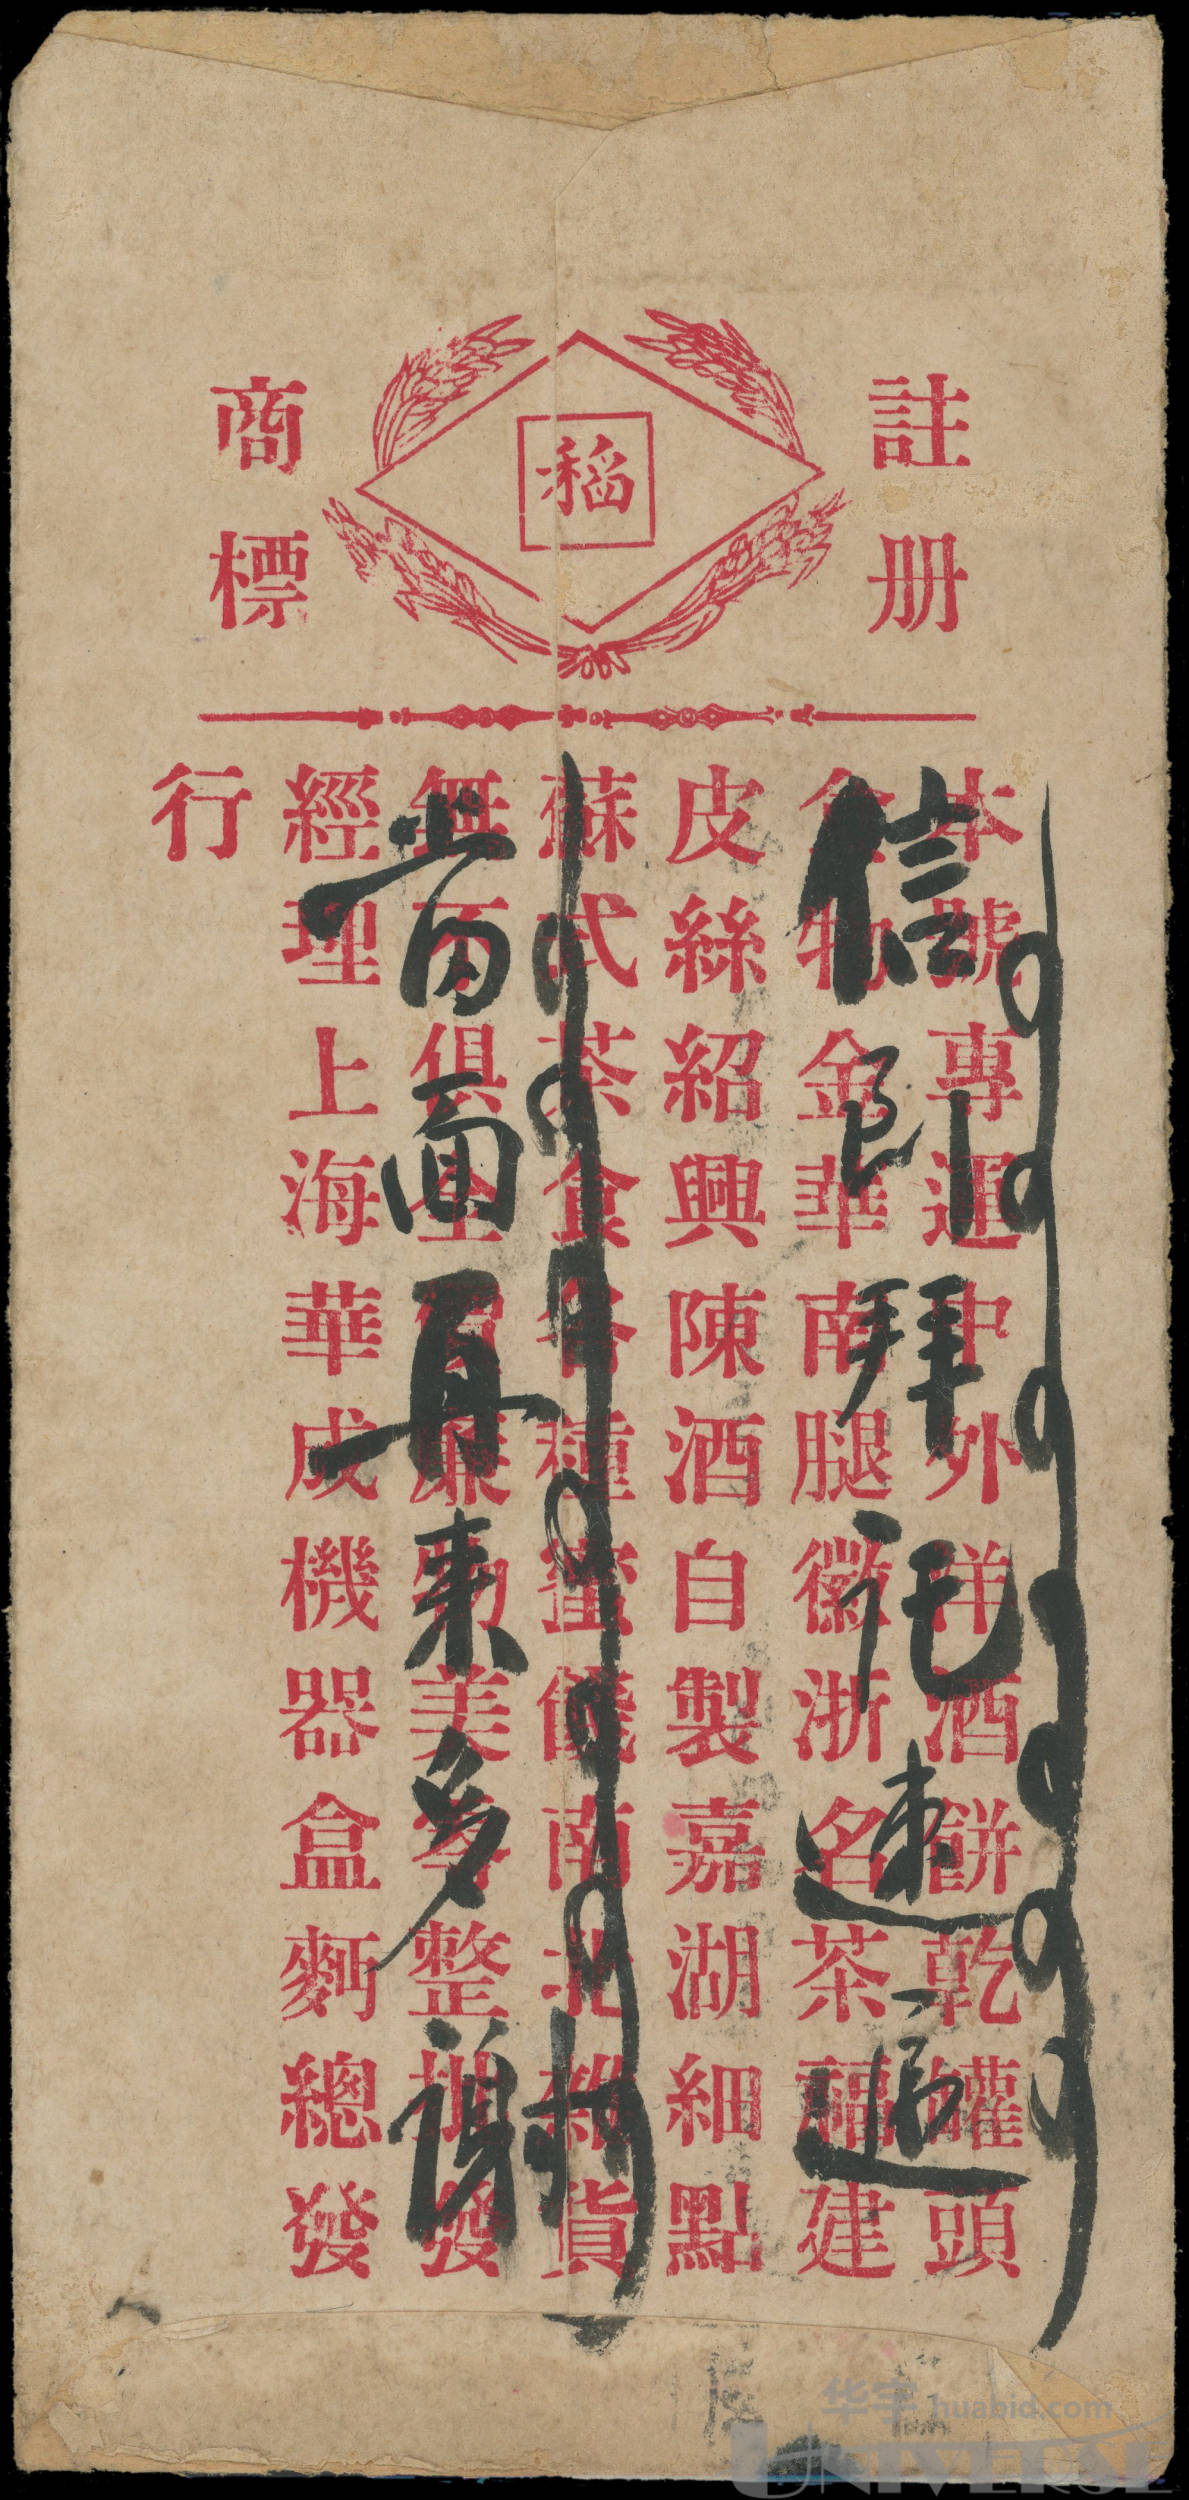 註册
稻
商標
本號專運中外洋酒餅乾罐頭
食物金華南腿徽浙名茶福建
皮絲紹興陳酒自製嘉湖細點
蘇式茶食各種蜜餞南北雜貨
無不俱全價廉物美零整批發
經理上海華成機器盒麪總發
行
信即拜托速遞
面再來多謝
华宇 huabid.com
UNIVERSE